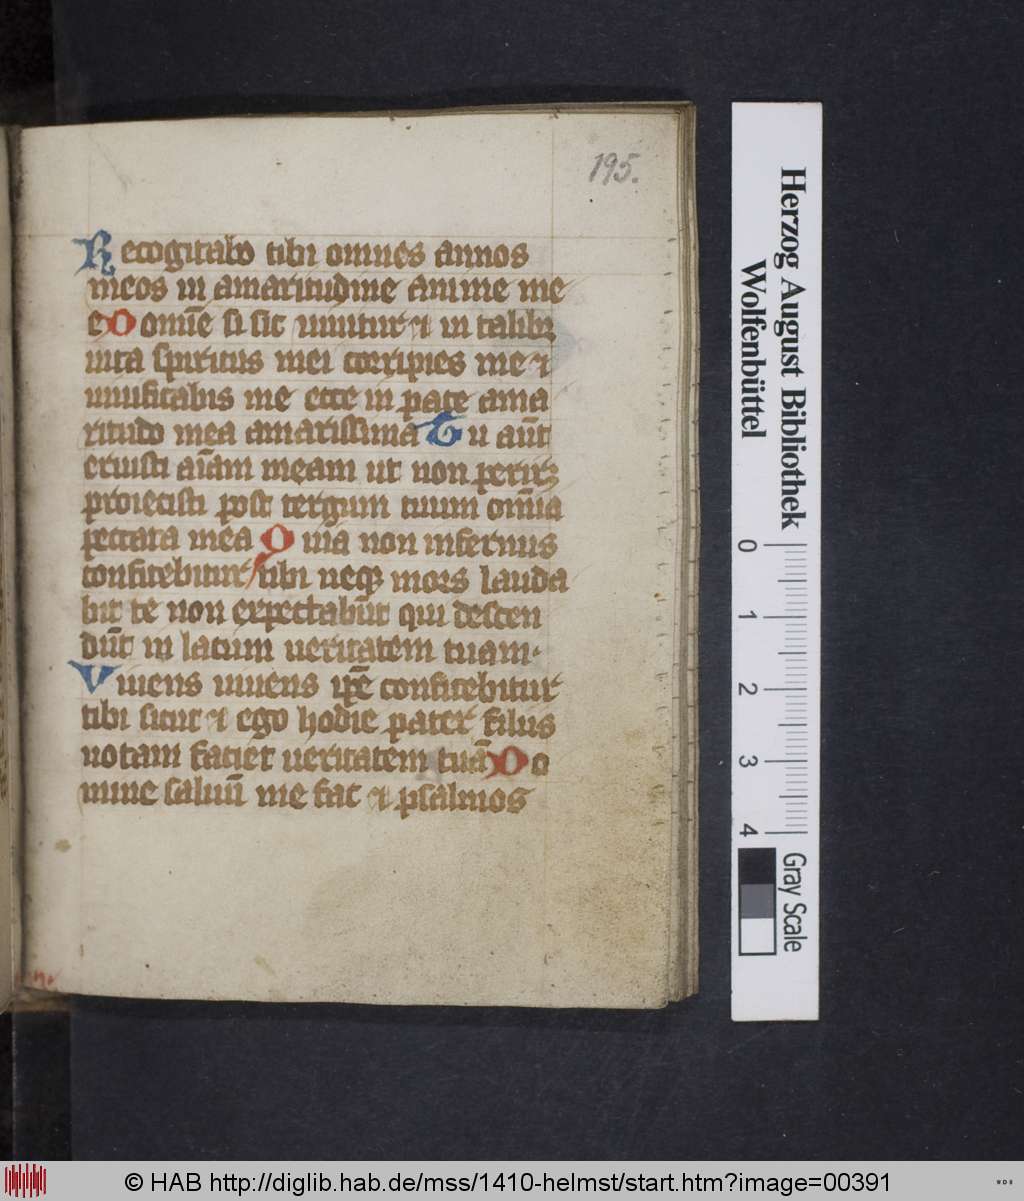 195.
Recogitabo tibi omnes annos
meos in amaritudine anime me
e Domīe si sic uiuitur et in talibꝫ
uita spiritus mei corripies me et
uiuificabis me ecce in pace ama
ritudo mea amarissima Tu aūt
eruisti aīam meam ut non perirꝫ
proiecisti post tergum tuum om̄ia
peccata mea Quia non infernus
confitebitur tibi neqꝫ mors lauda
bit te non expectabūt qui descen
dūt in lacum ueritatem tuam
Viuens uiuens ip̄e confitebitur
tibi sicut et ego hodie pater filiis
notam faciet ueritatem tuā Do
mine saluū me fac et psalmos
Herzog August Bibliothek
Wolfenbüttel
0 1 2 3 4
Gray Scale
© HAB http://diglib.hab.de/mss/1410-helmst/start.htm?image=00391